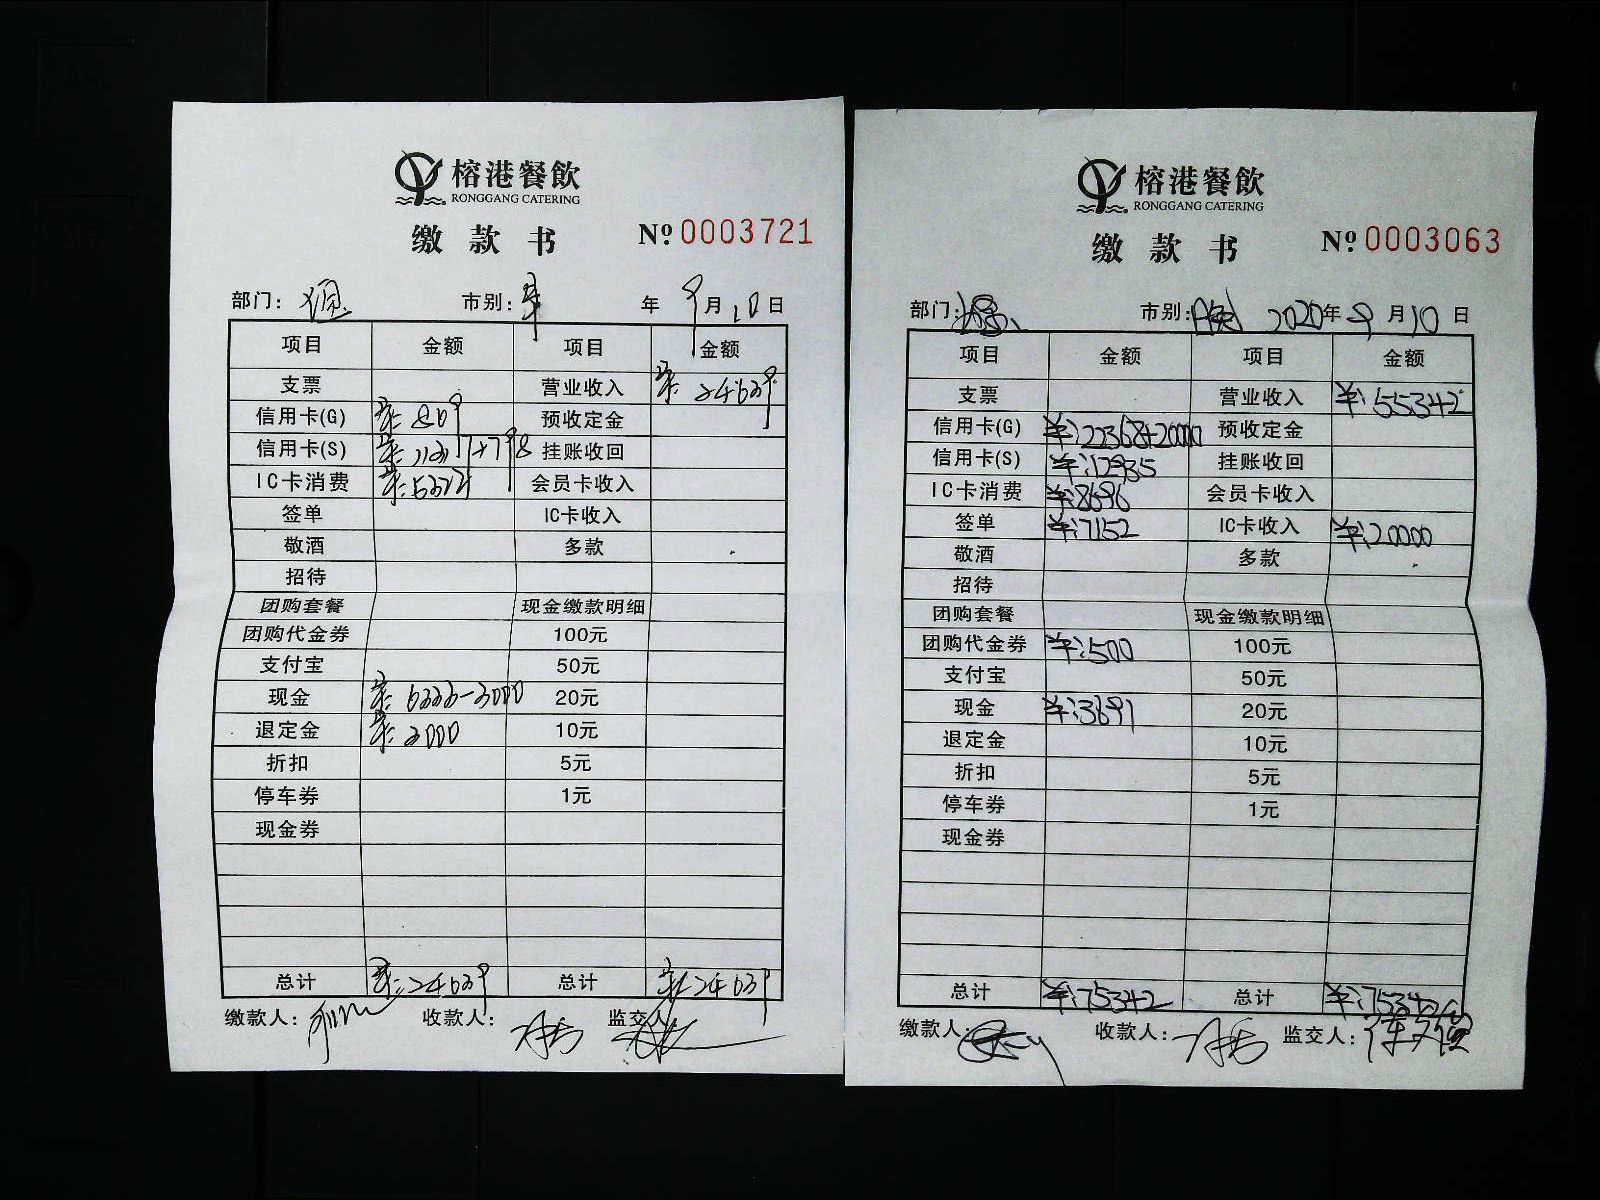 榕港餐飲
RONGGANG CATERING
缴款书 № 0003721
部门: 市别: 年 9月10日
项目 金额 项目 金额
支票 营业收入 ¥: 24639
信用卡(G) ¥: 809 预收定金
信用卡(S) 挂账收回
IC卡消费 会员卡收入
签单 IC卡收入
敬酒 多款
招待
团购套餐 现金缴款明细
团购代金券 100元
支付宝 50元
现金 20元
退定金 10元
折扣 5元
停车券 1元
现金券
总计 ¥: 24639 总计 ¥: 24639
缴款人: 收款人: 监交人
榕港餐飲
RONGGANG CATERING
缴款书 № 0003063
部门: 市别: 晚 2020年 9月10日
项目 金额 项目 金额
支票 营业收入 ¥: 55342
信用卡(G) ¥: 22368+20000 预收定金
信用卡(S) ¥: 12935 挂账收回
IC卡消费 ¥: 8696 会员卡收入
签单 ¥: 7152 IC卡收入 ¥: 20000
敬酒 多款
招待
团购套餐 现金缴款明细
团购代金券 ¥: 500 100元
支付宝 50元
现金 ¥: 3691 20元
退定金 10元
折扣 5元
停车券 1元
现金券
总计 ¥: 75342 总计 ¥: 75342
缴款人: 收款人: 监交人: